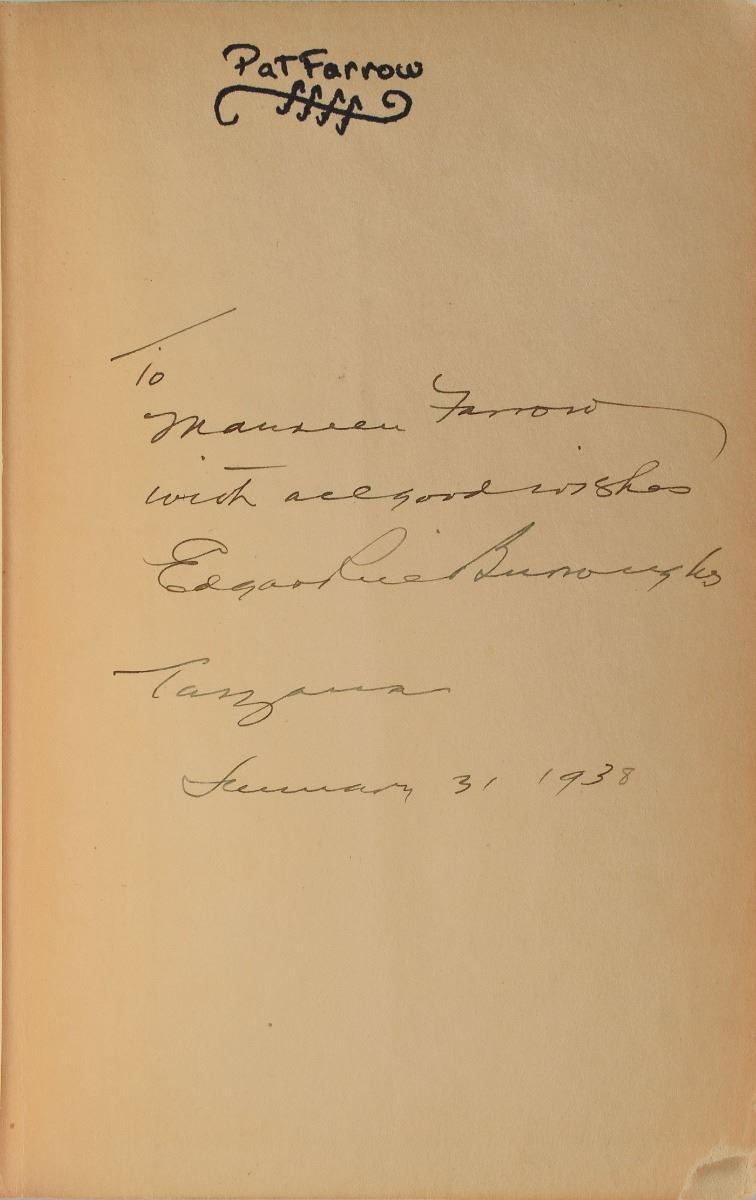 Pat Farrow
ffff
To
Maureen Farrow
with all good wishes
Edgar Rice Burroughs
Tarzana
January 31 1938